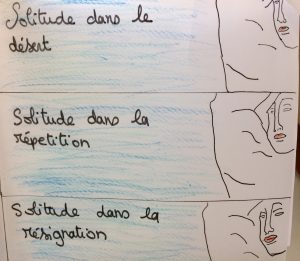 Solitude dans le
désert
Solitude dans la
répetition
Solitude dans la
résignation